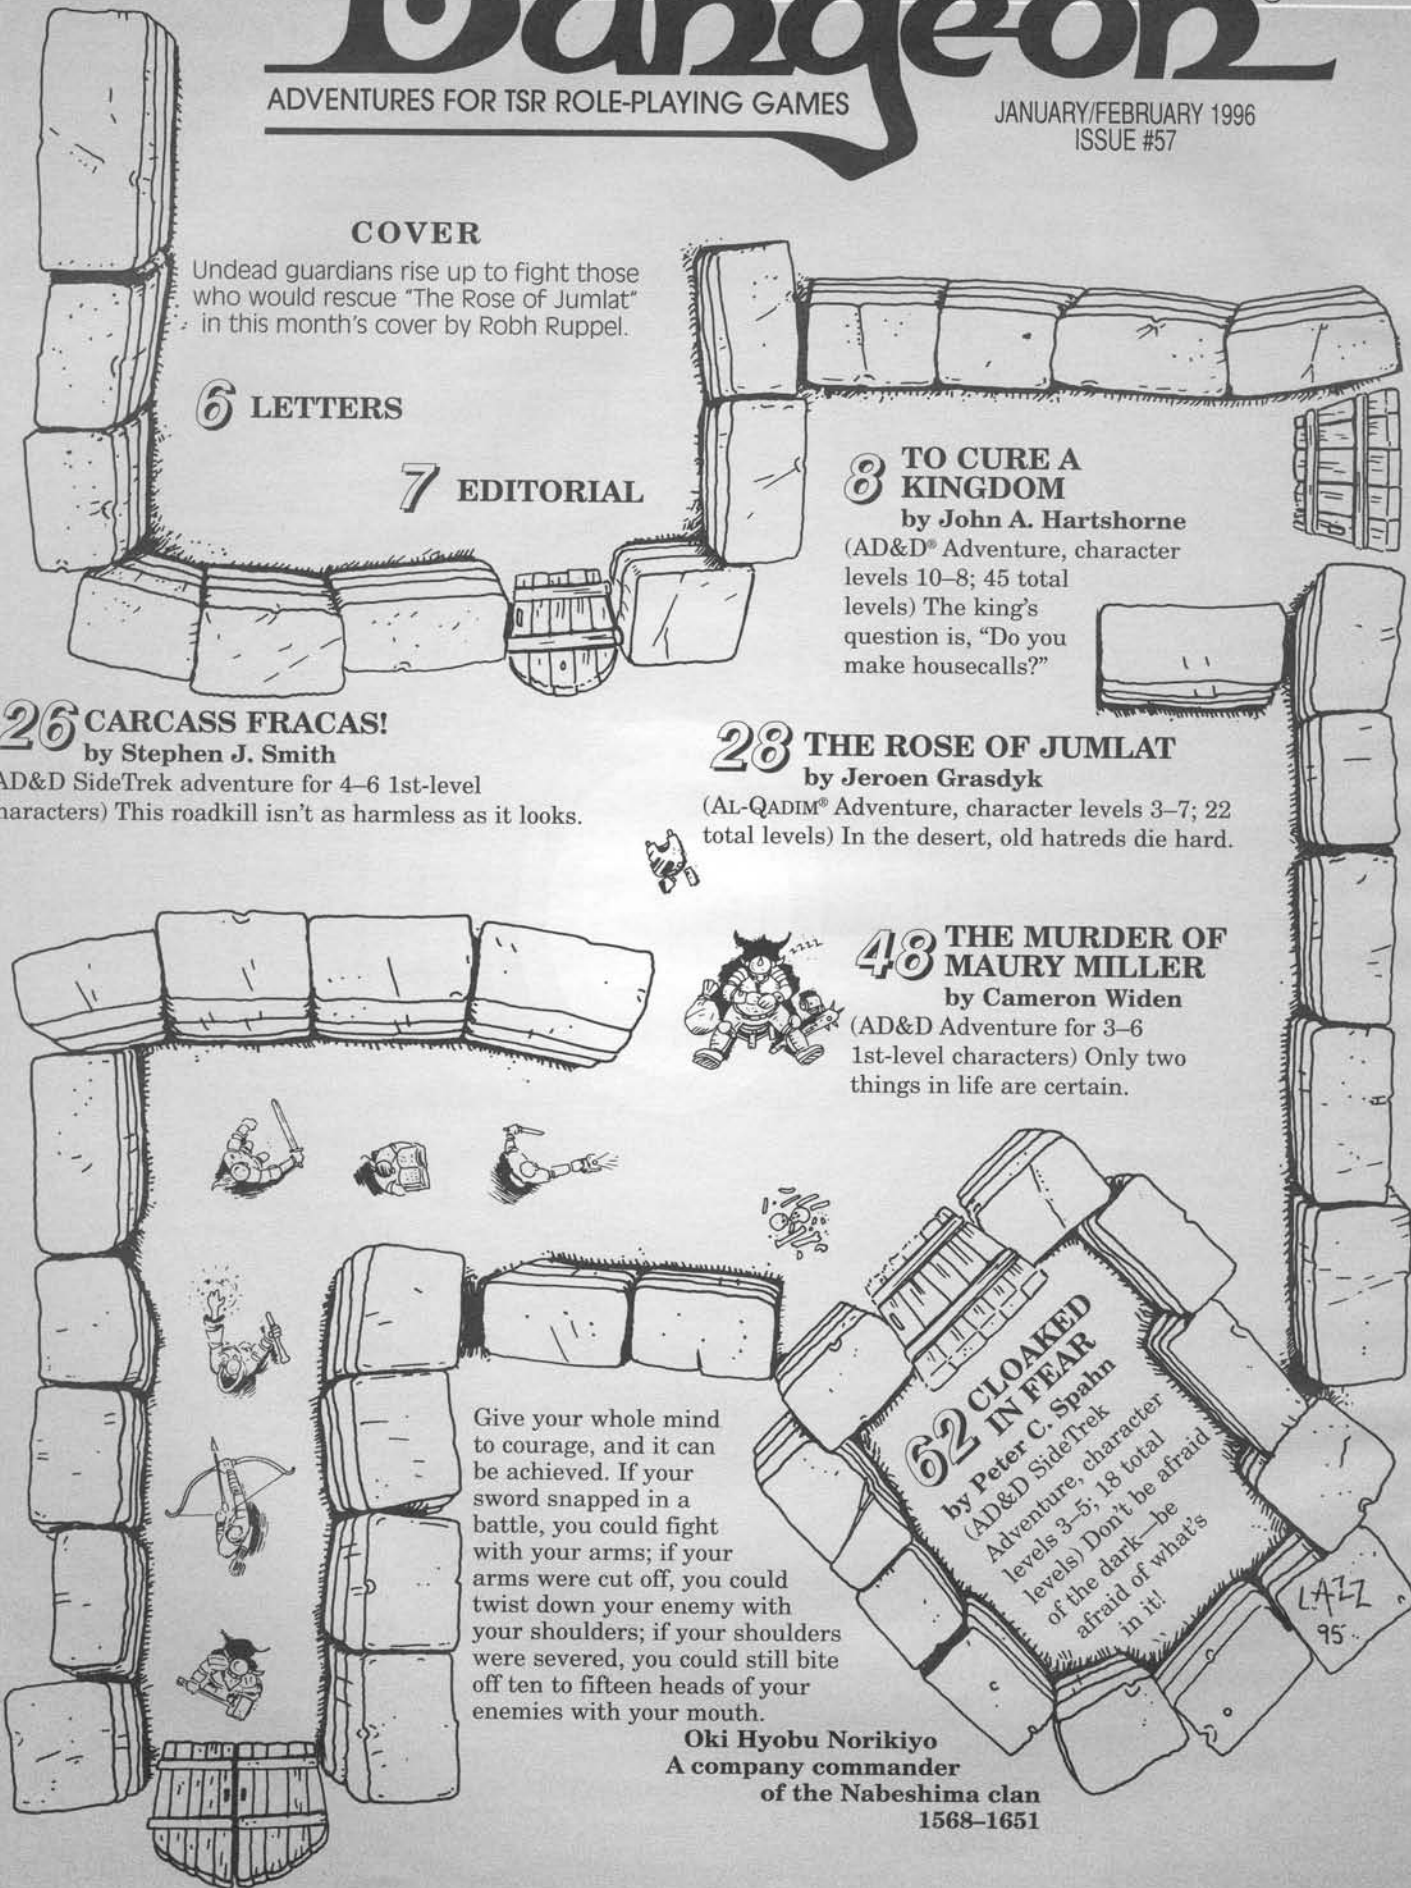 Dungeon®
ADVENTURES FOR TSR ROLE-PLAYING GAMES
JANUARY/FEBRUARY 1996
ISSUE #57
COVER
Undead guardians rise up to fight those
who would rescue "The Rose of Jumlat"
in this month's cover by Robh Ruppel.
6 LETTERS
7 EDITORIAL
8 TO CURE A
KINGDOM
by John A. Hartshorne
(AD&D® Adventure, character
levels 10–8; 45 total
levels) The king's
question is, “Do you
make housecalls?”
26 CARCASS FRACAS!
by Stephen J. Smith
AD&D SideTrek adventure for 4–6 1st-level
haracters) This roadkill isn't as harmless as it looks.
28 THE ROSE OF JUMLAT
by Jeroen Grasdyk
(AL-QADIM® Adventure, character levels 3–7; 22
total levels) In the desert, old hatreds die hard.
zzzz
48 THE MURDER OF
MAURY MILLER
by Cameron Widen
(AD&D Adventure for 3–6
1st-level characters) Only two
things in life are certain.
62 CLOAKED
IN FEAR
by Peter C. Spahn
(AD&D SideTrek
Adventure, character
levels 3–5; 18 total
levels) Don't be afraid
of the dark—be
afraid of what's
in it!
LAZZ
95
Give your whole mind
to courage, and it can
be achieved. If your
sword snapped in a
battle, you could fight
with your arms; if your
arms were cut off, you could
twist down your enemy with
your shoulders; if your shoulders
were severed, you could still bite
off ten to fifteen heads of your
enemies with your mouth.
Oki Hyobu Norikiyo
A company commander
of the Nabeshima clan
1568–1651